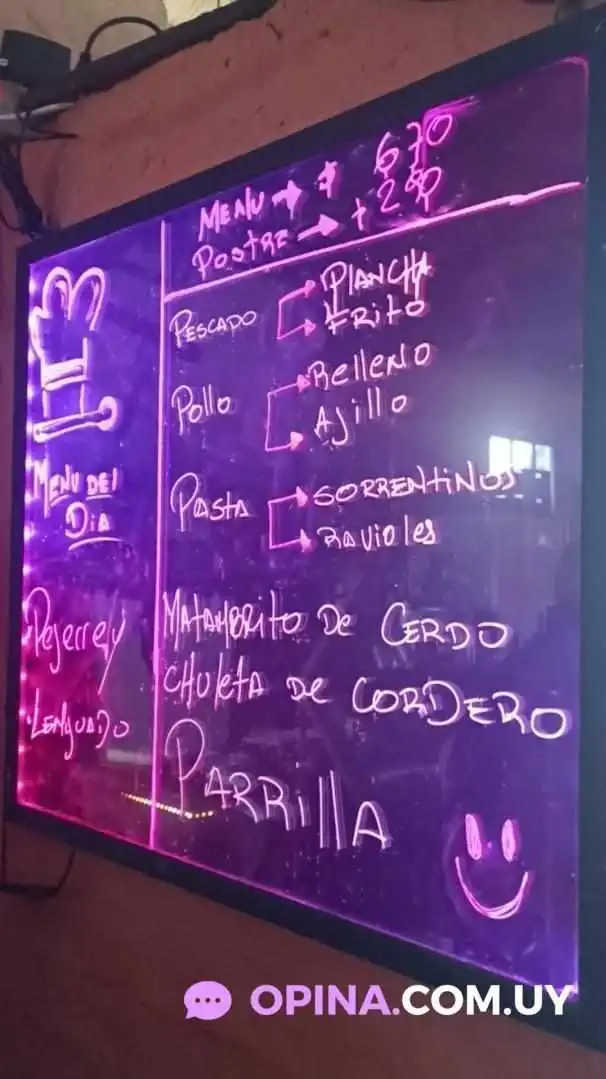 MENU → $ 670
POSTRE → + 280
MENU DEl
DiA
Pejerrey
LENGUADO
PESCADO → PLANCHA
→ FRITO
Pollo → Relleno
→ Ajillo
PASTA → SORRENTINOS
→ RAVIOles
MATAMBRITO De CERDO
CHULETA DE CORDERO
PARRILLA
OPINA.COM.UY